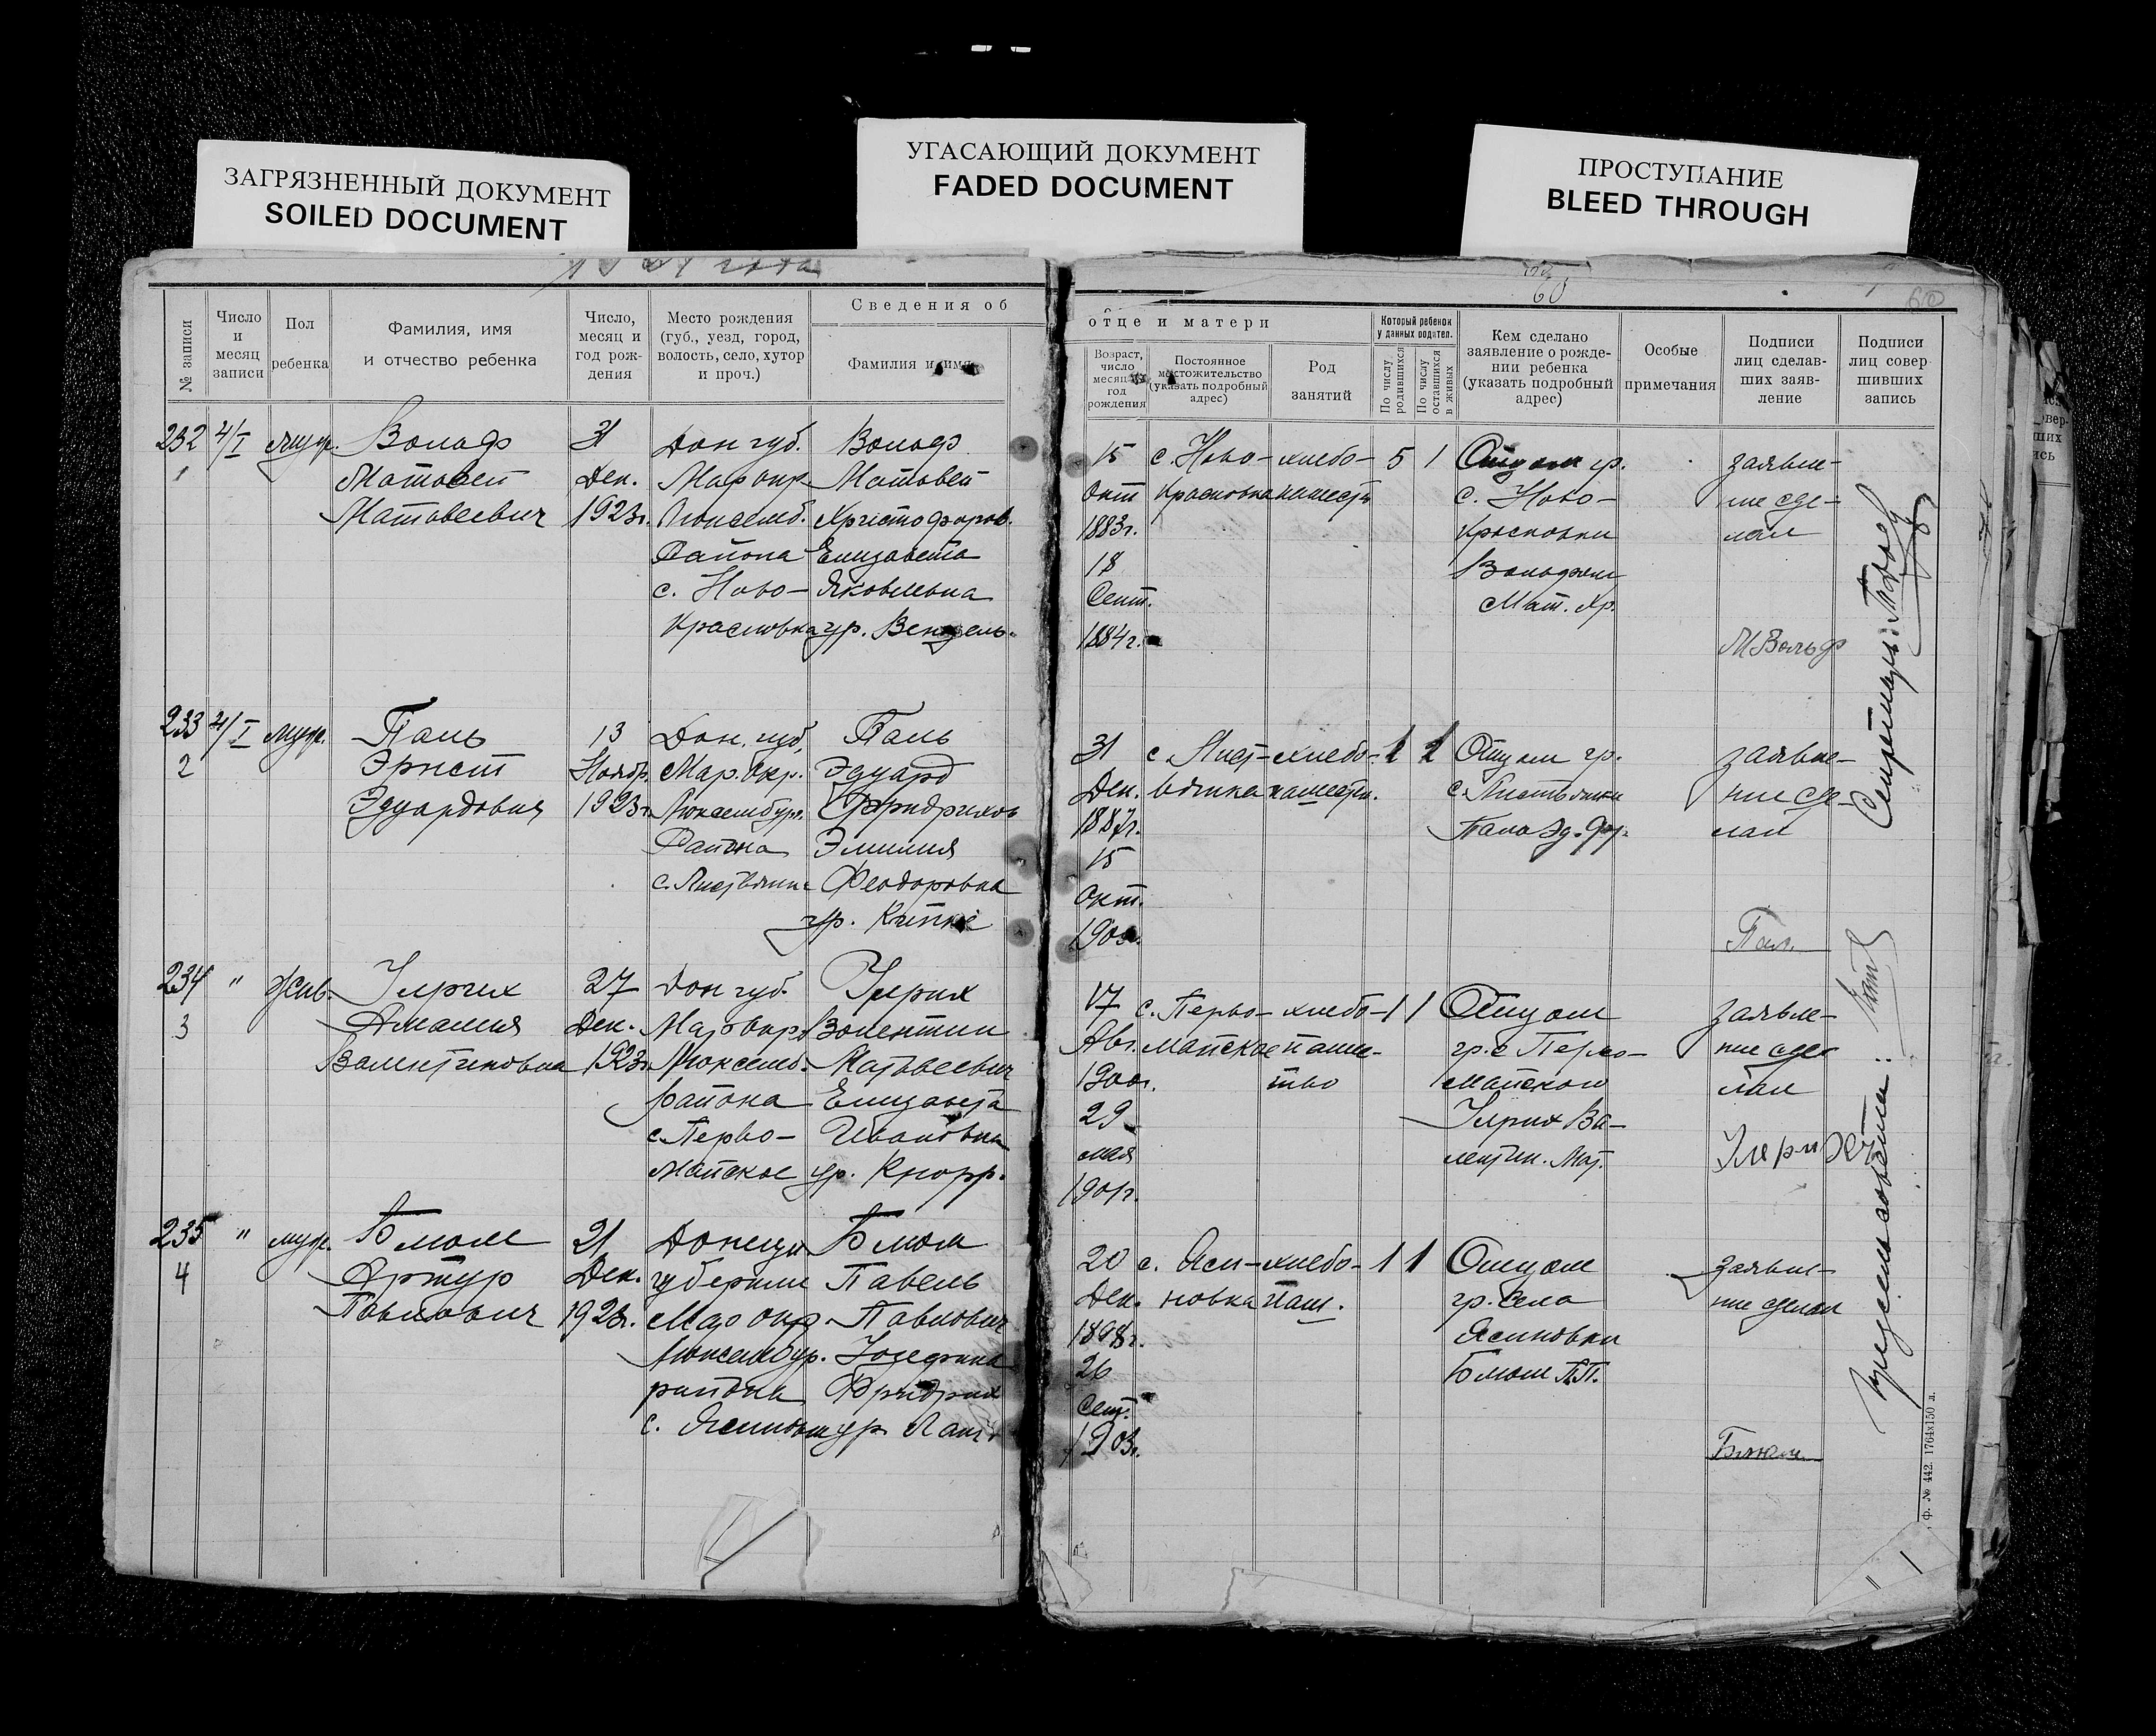 ЗАГРЯЗНЕННЫЙ ДОКУМЕНТ
SOILED DOCUMENT
УГАСАЮЩИЙ ДОКУМЕНТ
FADED DOCUMENT
ПРОСТУПАНИЕ
BLEED THROUGH
60
№ записи
Число и месяц записи
Пол ребенка
Фамилия, имя и отчество ребенка
Число, месяц и год рождения
Место рождения (губ., уезд, город, волость, село, хутор и проч.)
Сведения об отце и матери
Фамилия и имя
Возраст, число месяц год рождения
Постоянное местожительство (указать подробный адрес)
Род занятий
Который ребенок у данных родител.
По числу родившихся
По числу оставшихся в живых
Кем сделано заявление о рождении ребенка (указать подробный адрес)
Особые примечания
Подписи лиц сделавших заявление
Подписи лиц совер шивших запись
232 4/I муж. Вольф 31 Дон губ. Вольф
1 Матвей Дек. Мар окр Матвей
Матвеевич 1923г. Люксемб. Христофоров.
Района Елизавета
с. Ново- Яковлевна
Красновка ур. Венцель.
15 с. Ново- хлебо- 5 1 Отцом гр. заявле-
Окт Красновка пашест с. Ново- ние сде-
1883г. Красновки лал
18 Вольфом
Сент. Мат. Хр.
1884г. М Вольф
233 4/I муж. Паль 13 Дон. губ. Паль
2 Эрнест Ноябр. Мар. окр. Эдуард
Эдуардович 1923г. Люксембург. Фридрихов
Района Эмилия
с. Листвянк Феодоровна
ур.
31 с. Лист- хлебо- 1 1 Отцом гр. заявле-
Дек. вянка с. Листвянки ние сде-
1887г. лал
15
Окт.
Пал.
234 " Жен. Ульрих 27 Дон губ. Ульрих
3 Амалия Дек. Мар окр Валентин
Валентиновна 1923г. Люксемб. Матвеевич
района Елизавета
с. Перво- Ивановна
Майское ур. Кнорр.
17 с. Перво- хлебо- 1 1 Отцом заявле-
Авг. Майское паше- гр. с Перво- ние сде
1900г. тво майского лал
29 Ульрих Ва-
мая лентин. Мат. Ульрих
1901г.
235 " муж. Блюм 21 Донецк Блюм
4 Артур Дек. губернии Павель
Павлович 1923г. Мар окр Павлович
Люксембур. Жозефина
района Фридрих
с. Ясиновк ур
20 с. Яси- хлебо- 1 1 Отцом заявле-
Дек. новка паш. гр. села ние сделал
1898г. Ясиновки
26 Блюм П.П.
Сент.
1903г. Блюм
Председ. сельсовета:
Секретарь:
Ф. № 442. 1764х150 л.